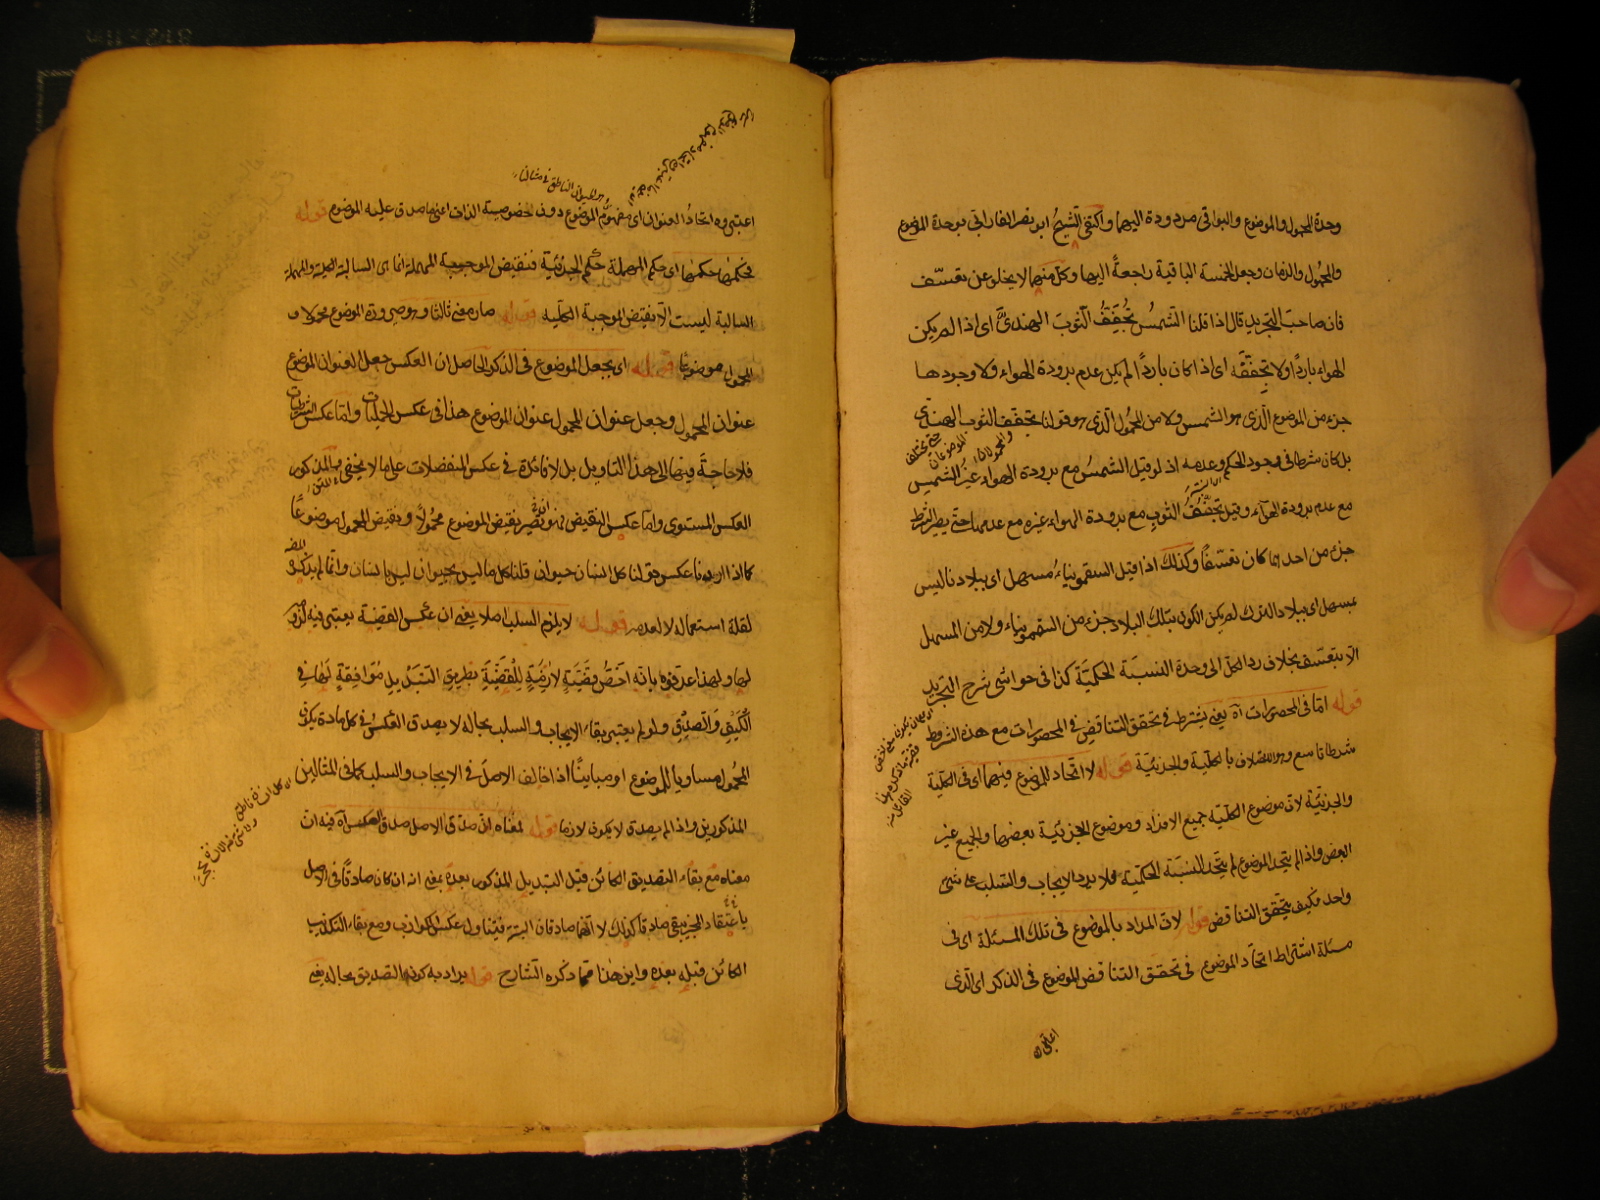 وحدة المحمول والموضوع والبواقي مردودة اليهما واكتفى الشيخ ابو نصر الفارابي بوحدة الموضوع
والمحمول والزمان وجعل الخمسة الباقية راجعة اليها وكل منهما لا يخلو عن تعسّف
فان صاحب التجريد قال اذا قلنا الشمسُ تُجَفِّفُ الثوبَ الهنديَّ اى اذا لم يكن
الهواء باردًا ولا تجففه اى اذا كان باردًا لم يكن عدم برودة الهواء ولا وجودها
جزء من الموضوع الّذى هو الشمس ولا من المحمول الّذى هو قولنا تجفف الثوب الهندى
بل كان شرطا فى وجود الحكم وعدمه اذ لو قيل الشمسُ مع برودة الهواء غيرُ الشمس
حتى يختلف الموضوعان والمحمولان
مع عدم برودة الهواء وقيل تجفّفُ الثوب مع برودة الهواء غيره مع عدمها حتى يصير الشرط
جزء من احدهما كان تعسّفًا وكذلك اذا قيل السقمونياء مسهل اى ببلادنا ليس
بمسهل اى ببلاد الترك لم يكن الكون بتلك البلاد جزء من السقمونياء ولا من المسهل
الّا بتعسّف بخلاف رد الكلّ الى وحدة النسبَة الحكميَّة كذا فى حواشى شرح التجريد
قوله امّا فى المحصورات آه يعنى يشترط فى تحقق التناقض فى المحصورات مع هذه الشروط
شرط تاسع وهو الاختلاف بالكلية والجزئيّة قوله لا اتحاد للموضوع فيهما اى فى الكلية
والجزئيّة لانّ موضوع الكلية جميع الافراد وموضوع الجزئية بعضها والجميع غير
البعض واذا لم يتحد الموضوع لم يتّحد النسبَة الحكمية فلا يرد الايجاب والسلب على شئ
واحد فكيف يتحقق التناقض قوله لانّ المراد بالموضوع فى تلك المسئلة اى فى
مسئلة اشتراط اتحاد الموضوع فى تحقق التناقض الموضوع فى الذكر اى الّذى
اعتبروه
اعتبروه اتحادُ العنوان اى مفهومُ الموضوع دون خصوصية الذات اعنى ما صدق عليه الموضوع قوله
هو الحيوان الناطق فى مثالنا
فحكمها حكمها اى حكم المهملة حكم الجزئية فنقيض الموجبة المهملة انما هى السالبة الكلية والمهملة
السالبة ليست الّا نقيض الموجبة الكلية قوله صار معنى ثالثا وهو صيرورة الموضوع محمولا و
المحمول موضوعًا قوله اى يجعل الموضوع فى الذكر الحاصل انّ العكس جعل العنوان الموضوع
عنوان المحمول وجعل عنوان المحمول عنوان الموضوع هذا فى عكس الحمليات وامّا عكس الشرطيات
فلا حاجةَ فيها الى هذا التاويل بل لا فائدة فى عكس المنفصلات على ما لا يخفى والمذكور
العكس المستوى واما عكس النقيض فهو تصيير نقيض الموضوع محمولًا ونقيض المحمول موضوعًا
كما اذا اردنا عكس قولنا كل انسان حيوان قلنا كل ما ليس بحيوان ليس بانسان وانّما لم يذكره
لقلة استعماله لا لعدمه قوله لا يلزم السلب اصلا يعنى ان عكس القضية يعتبر فيه لزومه
لها ولهذا عرّفوه بانّه اخصُّ قضيَّةٍ لازمةٍ للقضيَّةِ بطريق التبديل موافقةٍ لها فى
الكيف والصدق ولو لم يعتبر بقاء الايجاب والسلب بحاله لا يصدق العكسُ فى كل مادة يكون
المحمول مساويا للموضوع او مباينًا اذا خالف الاصلَ فى الايجاب والسلب كما فى المثالين
المذكورين واذا لم يصدق لا يكون لازما قوله معناه انّ صدّق الاصل صدق العكس آه فيه انّ
معناه مع بقاء التصديق الكائن قبل التبديل المذكور بعده بمعنى انه ان كان صادقًا فى الاصل
باعتقاد المخبر يبقى صادقا كذلك لا انّهما صادقان البتة فيتناول عكس الكواذب ومع بقاء التكذيب
الكائن قبله بعده واين هذا ممّا ذكره الشارح قوله يراد به كون التصديق بحاله يعنى